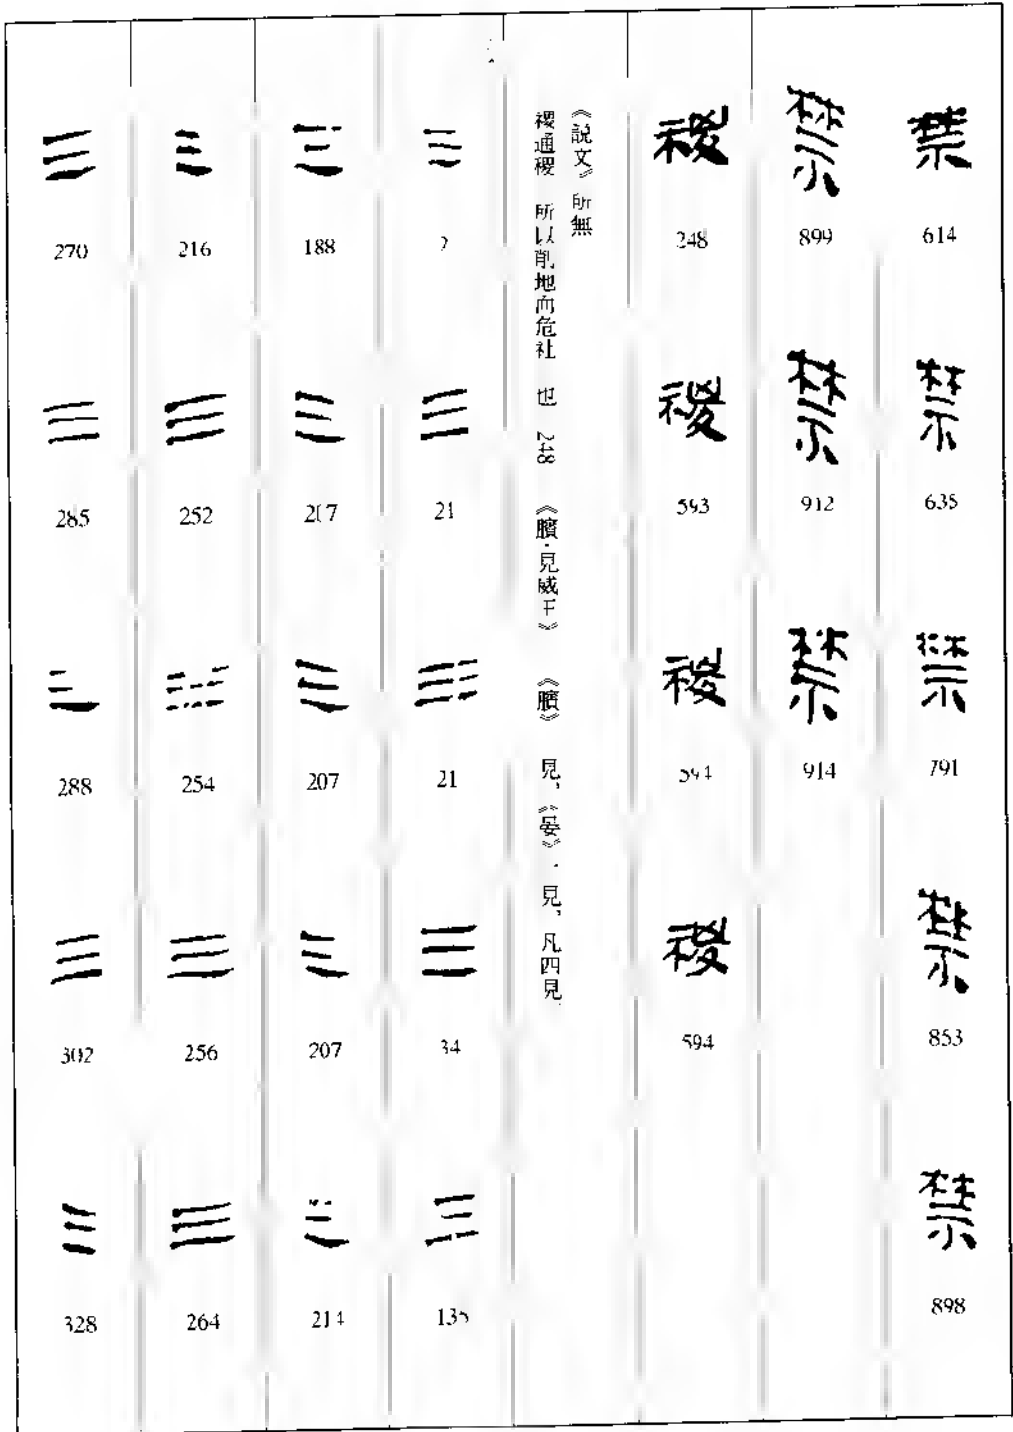 禁 614
禁 635
禁 791
禁 853
禁 898
禁 899
禁 912
禁 914
禝 248
禝 593
禝 594
禝 594
《説文》所無
禝通稷 所以削地而危社 也 248 《臏·見威王》 《臏》 見,《晏》 見,凡四見
三 2
三 21
三 21
三 34
三 135
三 188
三 207
三 207
三 214
三 216
三 252
三 254
三 256
三 264
三 270
三 285
三 288
三 302
三 328